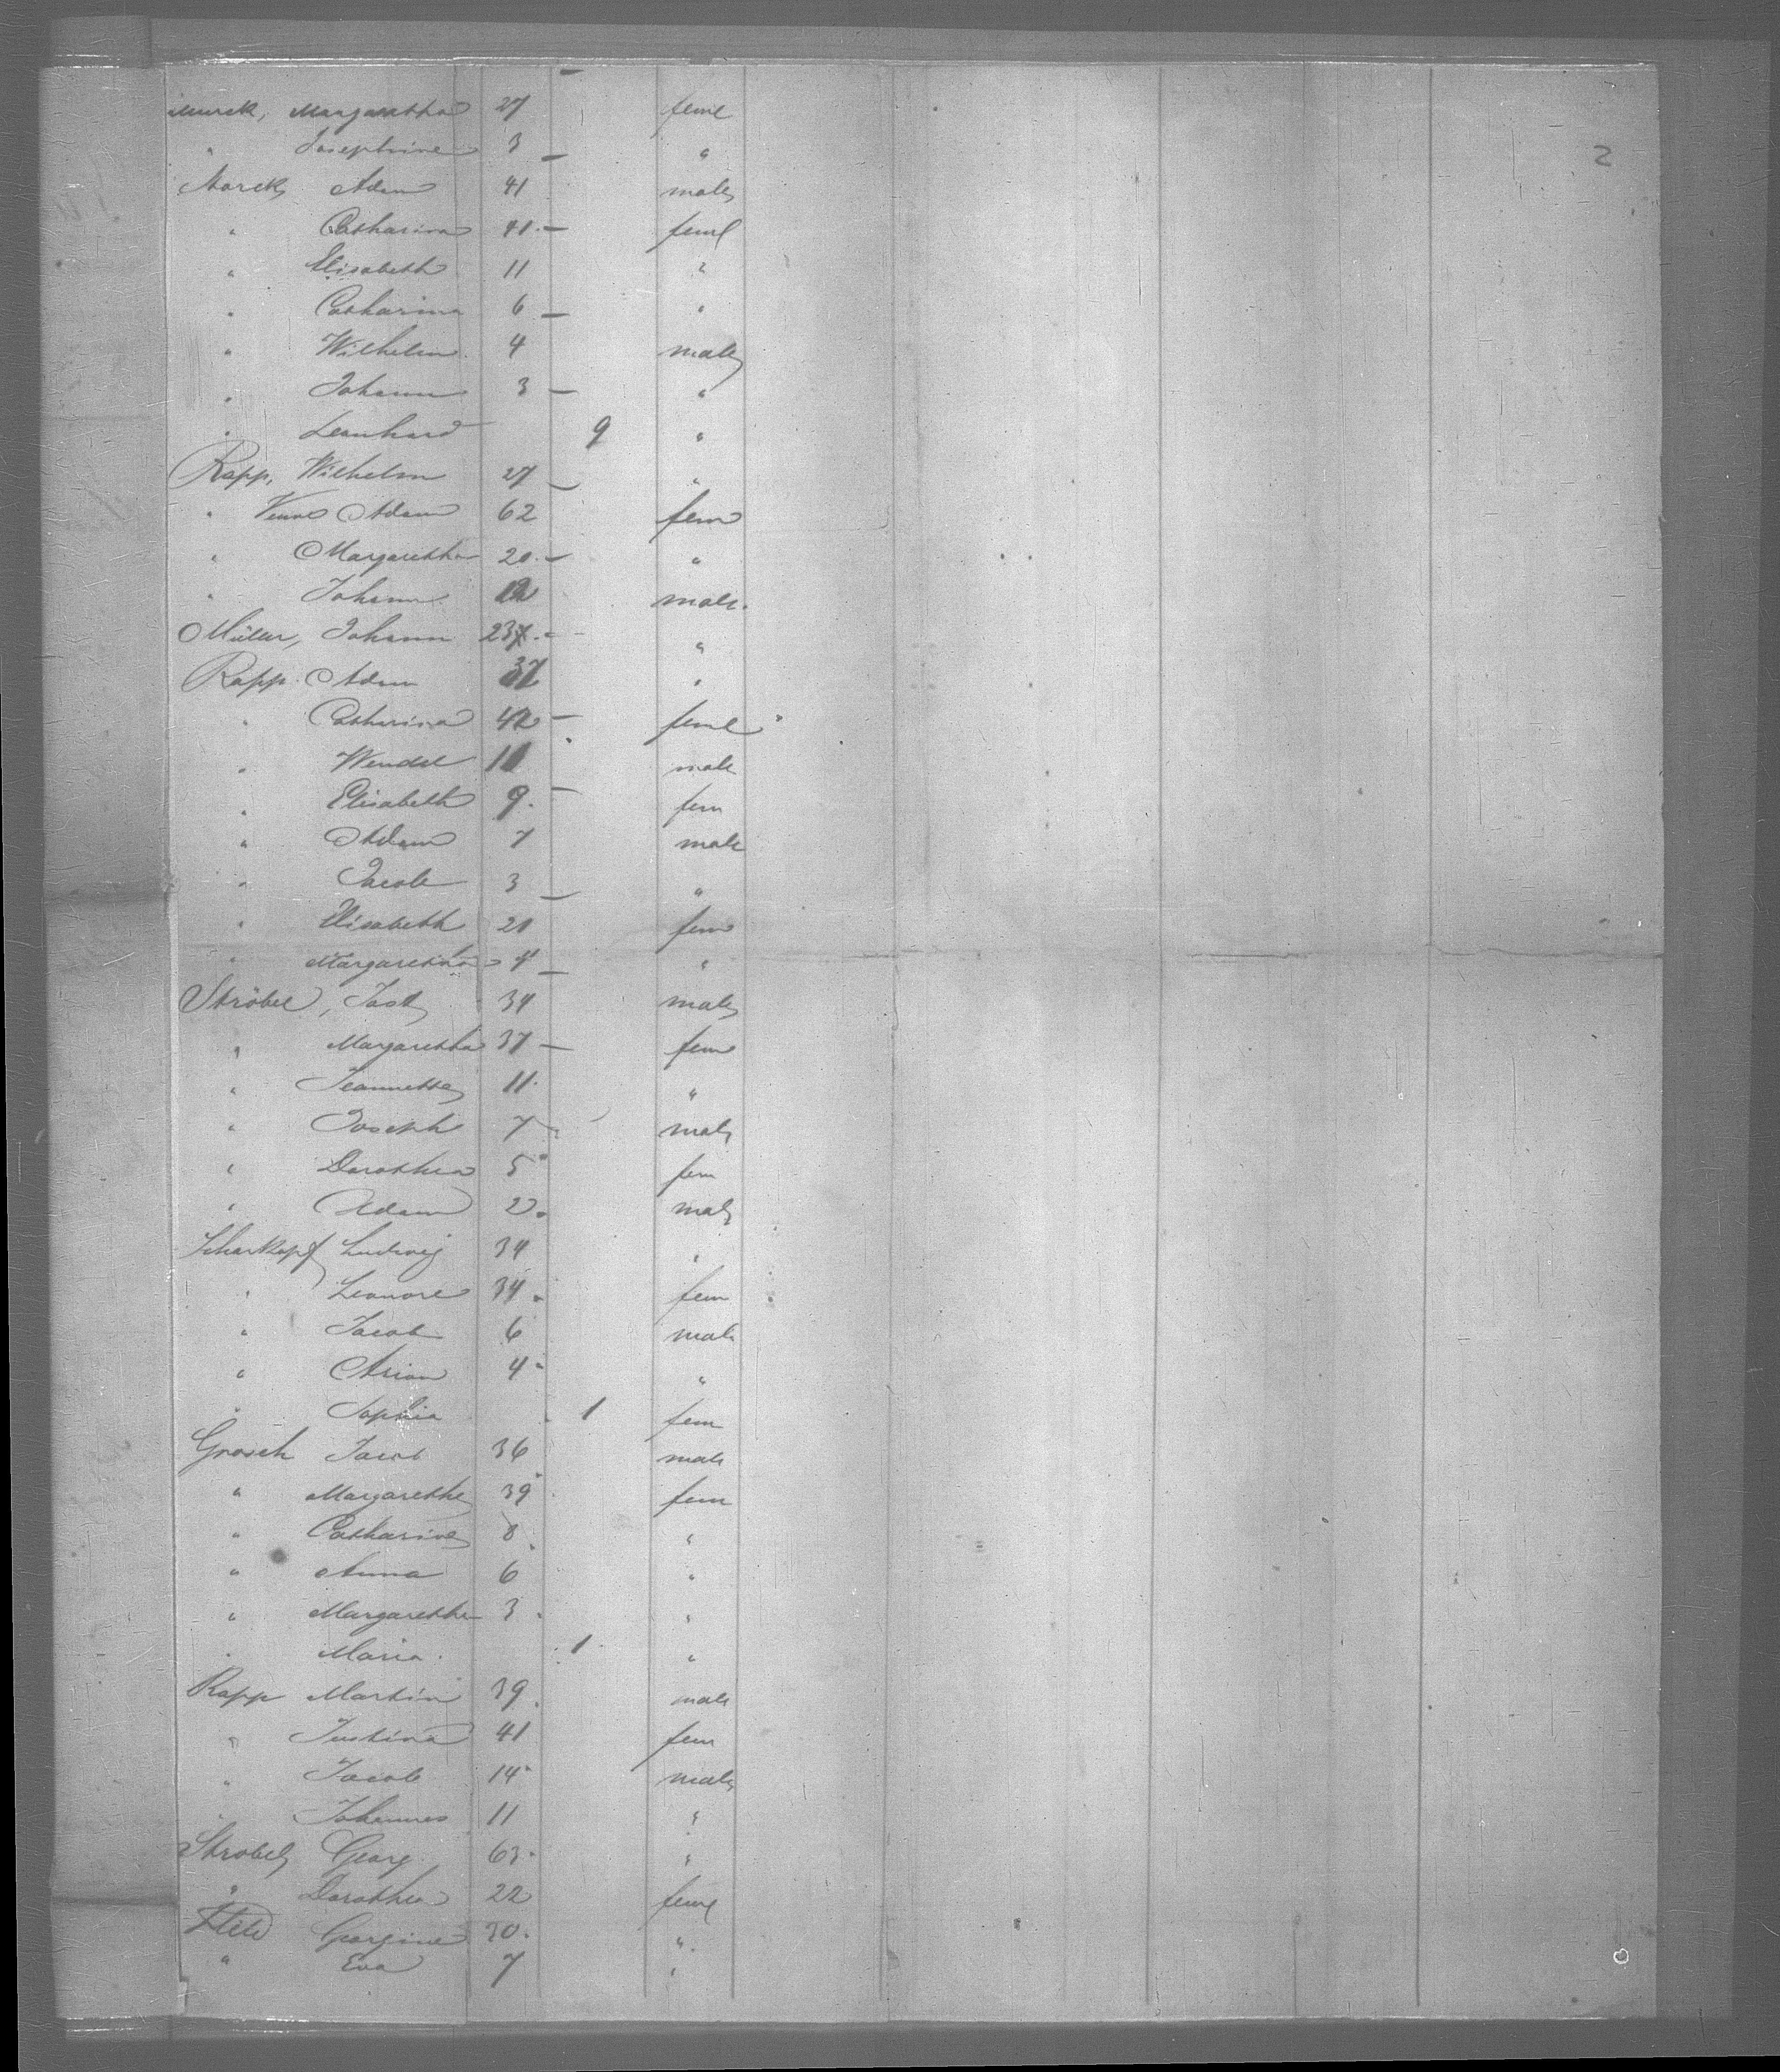 Murck, Margaretha 27 feml
" Josephine 3 — "
Marck, Adam 41 male
" Catharina 41 — feml
" Elisabeth 11 "
" Catharina 6 — "
" Wilhelm 4 male
" Johann 3 — "
" Leonhard 9 "
Rapp, Wilhelm 27 — "
" Adam 62 fem
" Margaretha 20 — "
" Johann male.
Müller, Johann "
Rapp. Adam 37 "
" Catharina 42 — feml
" Wendel 11 male
" Elisabeth 9. — fem
" Adam 7 male
" Jacob 3 — "
" Elisabeth 21 fem
" Margaretha — "
Ströbel, Jost 34 male
" Margaretha 37 — fem
" Jeannette 11. "
" Joseph 7 male
" Dorothea 5 fem
" Adam 2. male
Scharkopf Ludwig 34 "
" Leonore 34. fem
" Jacob 6 male
" 4 "
" Sophia 1 fem
Grosch Jacob 36 male
" Margarethe 39 fem
" Catharine 8. "
" Anna 6 "
" Margaretha 3. "
" Maria. 1 "
Rapp Martin 39. male
" Justina 41 fem
" Jacob 14 male
" Johannes 11 "
Strobel, Georg 63. "
" Dorothea 22 feml
Georgine 30. "
" Eva 7 "
2